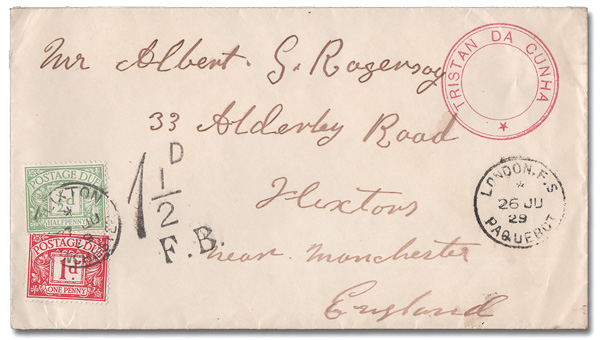 Mr Albert G. Rogerson
33 Alderley Road
Flixton
near Manchester
England
TRISTAN DA CUNHA
LONDON. F.S
26 JU
29
PAQUEBOT
1 1/2 D
F.B.
POSTAGE DUE
½d
HALFPENNY
POSTAGE DUE
1d
ONE PENNY
FLIXTON
JU